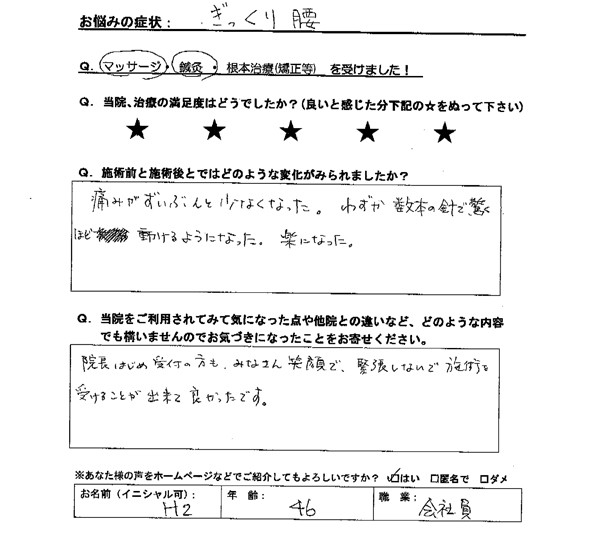 お悩みの症状： ぎっくり腰
Q．マッサージ・鍼灸・根本治療(矯正等) を受けました！
Q．当院、治療の満足度はどうでしたか？(良いと感じた分下記の☆をぬって下さい)
★ ★ ★ ★ ★
Q．施術前と施術後とではどのような変化がみられましたか？
痛みがずいぶんと少なくなった。 わずか 数本の針で驚く
ほど 動けるようになった。 楽になった。
Q．当院をご利用されてみて気になった点や他院との違いなど、どのような内容
でも構いませんのでお気づきになったことをお寄せください。
院長はじめ 受付の方も、みなさん 笑顔で、緊張しないで 施術を
受けることが 出来て 良かったです。
※あなた様の声をホームページなどでご紹介してもよろしいですか？ ☑はい □匿名で □ダメ
お名前（イニシャル可）： 年 齢： 職 業：
H2 46 会社員